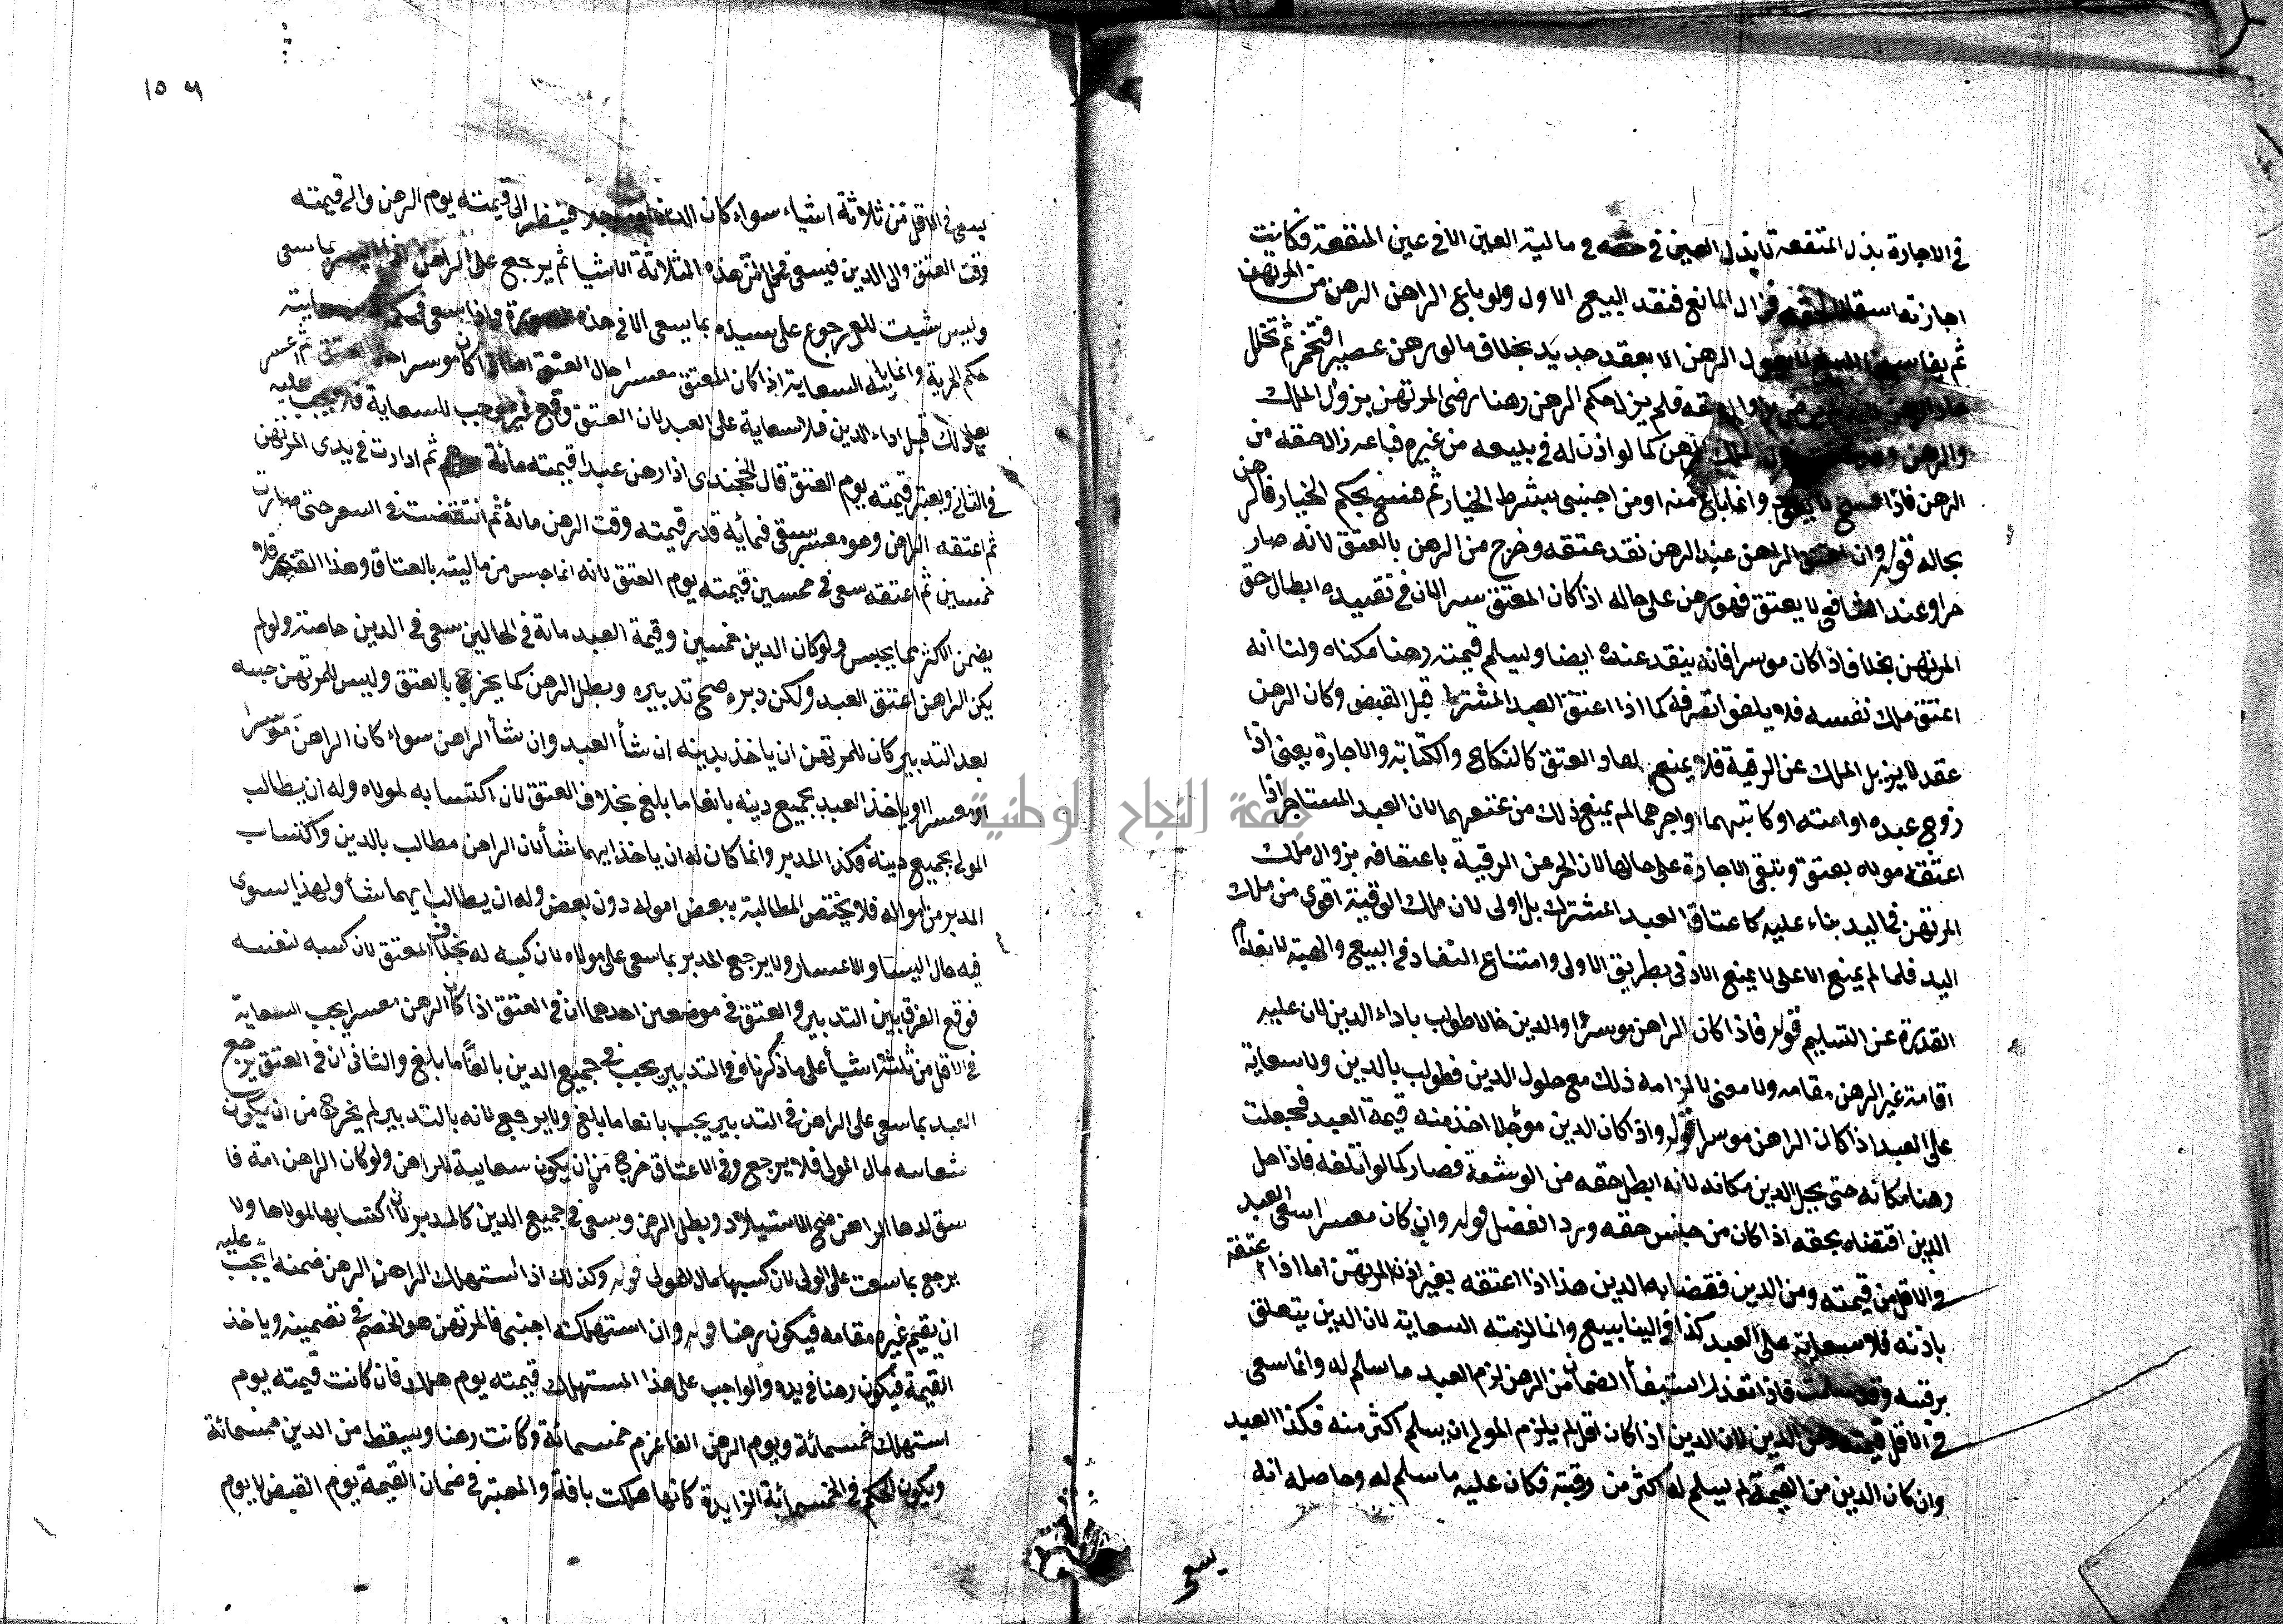 في الاجارة بذل المنفعة لا بذل العين في حقه في مالية العين لا في عين المنفعة فكانت
اجازته اسقاطا لحقه فزال المانع فنفد البيع الاول ولو باع الراهن الرهن من المرتهن
ثم تفاسخا البيع لا يعود الرهن الا بعقد جديد بخلاف ما لو رهن عصيرا فتخمر ثم تخلل
عاد الرهن فلم يزل حكم الرهن وهنا رضي المرتهن بزوال الملك
والرهن الملك الرهن كما لو اذن له في بيعه من غيره فباعه زال حقه من
الرهن فاذا فسخ لا يعود وانما باع منه او من اجنبي بشرط الخيار ثم فسخ بحكم الخيار فالرهن
بحاله قوله وان اعتق الراهن عبد الرهن نفد عتقه وخرج من الرهن بالعتق لانه صار
حرا وعند الشافعي لا يعتق فهو رهن على حاله اذا كان المعتق سرا لان في تقييده ابطال حق
المرتهن بخلاف اذا كان موسرا فانه ينفد عنده ايضا ويسلم قيمته رهنا مكناه ولنا انه
اعتق ملك نفسه فلا يلغوا تصرفه كما اذا اعتق العبد المشترا قبل القبض وكان الرهن
عقد لا يزيل الملك عن الرقبة فلا يمنع لعاد العتق كالنكاح والكتابة والاجارة يعني اذا
زوج عبده او امته او كاتبهما او اجرهما لم يمنع ذلك من عتقهما لان العبد المستاجر اذا
اعتقه مولاه يعتق وتبقى الاجارة على حالها لان الحر عن الرقبة باعتقافه بزوال ملك
المرتهن في اليد بناء عليه كاعتاق العبد المشترك بل اولى لان ملك الرقبة اقوى من ملك
اليد فلما لم يمنع الاعلى لا يمنع الادنى بطريق الاولى وامتناع النفاد في البيع والهبة لانعدام
القدرة عن التسليم قوله فاذا كان الراهن موسرا والدين حالا طولب باداء الدين لان عليه
اقامة غير الرهن مقامه ولا معنى لالزامه ذلك مع حلول الدين فطولب بالدين ولا سعاية
على العبد اذا كان الراهن موسرا قوله واذا كان الدين مؤجلا اخذ منه قيمة العبد فجعلت
رهنا مكانه حتى يحل الدين مكانه لانه ابطل حقه من الوشمة فصار كما لو اتلفه فاذا حل
الدين اقتضاه بحقه اذا كان من جنس حقه ويرد الفضل قوله وان كان معسرا سعى العبد
في الاقل من قيمته ومن الدين فقضا به الدين هذا اذا اعتقه بغير اذن المرتهن اما اذا عتقه
باذنه فلا سعاية على العبد كذا في الينابيع وانما لزمته السعاية لان الدين يتعلق
برقبته وقد سلمت فاذا تعذر استيفأ الضمان من الرهن لزم العبد ما سلم له وانما سعى
في الاقل من قيمته ومن الدين لان الدين اذا كان اقل لم يلزم المولى ان يسلم اكثر منه فكذا العبد
وان كان الدين من القيمة لم يسلم له اكثر من رقبته فكان عليه ما سلم له وحاصله انه
يسعى
١٥٦
يسعى في الاقل من ثلاثة اشياء سواء كان فينظر الى قيمته يوم الرهن والى قيمته
وقت العتق والى الدين فيسعى في اقل من هذه الثلاثة الاشيا ثم يرجع على الراهن اذا ايسر بما سعى
وليس شيت للرجوع على سيده بما يسعى الا في هذه الصورة واذا سعى فحكم سعايته
حكم الحرية وانما سله السعاية اذا كان المعتق معسرا حال العتق اما اذا كان موسرا حال العتق ثم عسر
بعد ذلك قبل اداء الدين فلا سعاية على العبد لان العتق وقع غير موجب للسعاية فلا يجب عليه
في الثاني ويعتبر قيمته يوم العتق قال الخجندي اذا رهن عبدا قيمته مائة ثم ادارت في يدى المرتهن
ثم اعتقه الراهن وهو معسر سعى في مأية قدر قيمته وقت الرهن مائة ثم انتقضت في السعر حتى صارت
خمسين ثم اعتقه سعى في خمسين قيمته يوم العتق لانه انما حبس من ماليته بالعتاق وهذا القدر فلا
يضمن الاكثر مما يحبس ولو كان الدين خمسين وقيمة العبد مائة في الحالين سعى في الدين خاصة ولو لم
يكن الراهن اعتق العبد ولكن دبره صح تدبيره وبطل الرهن كما يخرج بالعتق وليس للمرتهن حبسه
بعد التدبير كان للمرتهن ان ياخذ بدينه ان شأ العبد وان شأ الراهن سواء كان الراهن موسرا
او معسرا او ياخذ العبد بجميع دينه بالغا ما بلغ بخلاف العتق لان اكتسابه لمولاه وله ان يطالب
المولى بجميع دينه فكذا المدبر وانما كان له ان ياخذ ايهما شأ لان الراهن مطالب بالدين واكتساب
المدبر من امواله فلا يختص المطالبة ببعض امواله دون بعض وله ان يطالب ايهما شأ ولهذا سوى
فيه حال اليسار والاعسار ولا يرجع المدبر بما سعى على مولاه لان كسبه له بخلاف المعتق لان كسبه لنفسه
فوقع الفرق بين التدبير والعتق في موضعين احدهما ان في العتق اذا كان الرهن معسرا يجب السعاية
في الاقل من ثلثة اشيأ على ما ذكرنا وفي التدبير يجب في جميع الدين بالغا ما بلغ والثاني ان في العتق يرجع
العبد بما سعى على الراهن في التدبير يجب بالغا ما بلغ ولا يرجع لانه بالتدبير لم يخرج من ان يكون
سعايه مال المولى فلا يرجع وفي الاعتاق خرج من ان يكون سعايبة للراهن ولو كان الراهن امة فا
ستولدها الراهن صح الاستيلاد وبطل الرهن وسعى في جميع الدين كالمدبر لان اكتسابها لمولاها ولا
يرجع بما سعت على المولى لان كسبها مال للمولى قوله وكذلك اذا استهلك الراهن الرهن ضمنه يجب عليه
ان يقيم غيره مقامه فيكون رهنا قوله وان استهلكه اجنبي فالمرتهن هو الخصم في تضمينه وياخذ
القيمة فيكون رهنا في يده والواجب على هذا المستهلك قيمته يوم هلك فان كانت قيمته يوم
استهلك خمسمائة ويوم الرهن الفا غرم خمسمائة وكانت رهنا وسقط من الدين خمسمائة
ويكون الحكم في الخمسمائة الزايدة كانها هلكت بافة والمعتبر في ضمان القيمة يوم القبض لا يوم
جامعة النجاح الوطنية